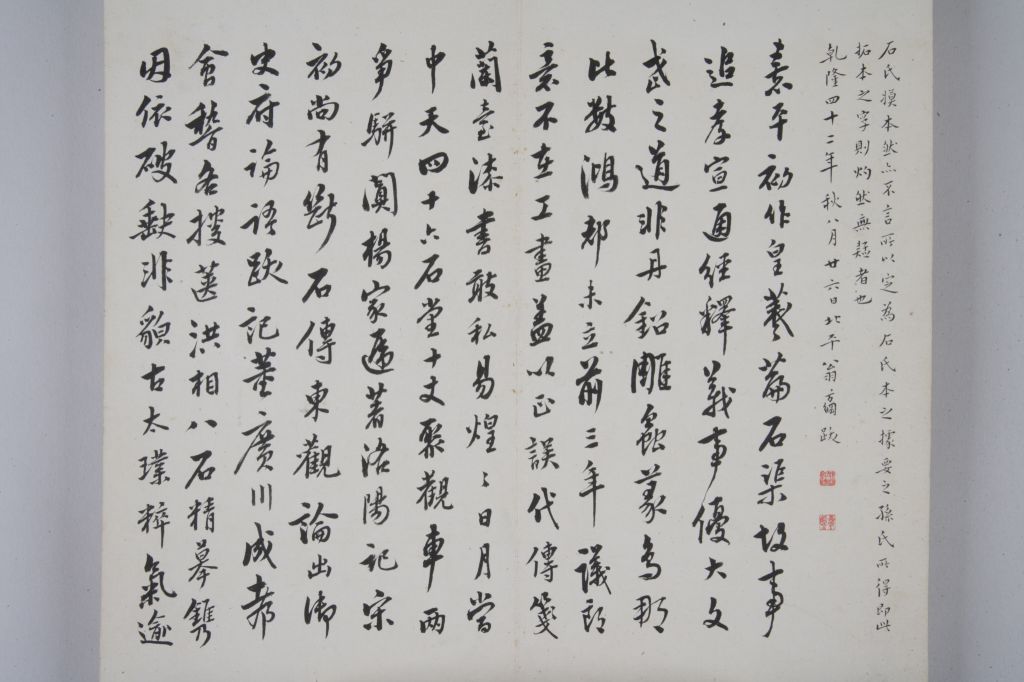 石氏摸本然亦不言所以定為石氏本之據要之孫氏所得即此
拓本之字則灼然無疑者也
乾隆四十二年秋八月廿六日北平翁方綱跋
熹平初作皇羲篇石渠故事
追孝宣通經釋義事優大文
武之道非丹鉛雕蟲篆鳥那
比數鴻都未立前三年議郎
意不在工畫蓋以正誤代傳箋
蘭臺漆書敢私易煌〻日月當
中天四十六石堂十丈聚觀車兩
爭駢闐楊家遞著洛陽記宋
初尚有斷石傳東觀論出御
史府論語跋記董廣川成都
會稽各搜篋洪相八石精摹鐫
因依破缺非貌古太璞粹氣逾